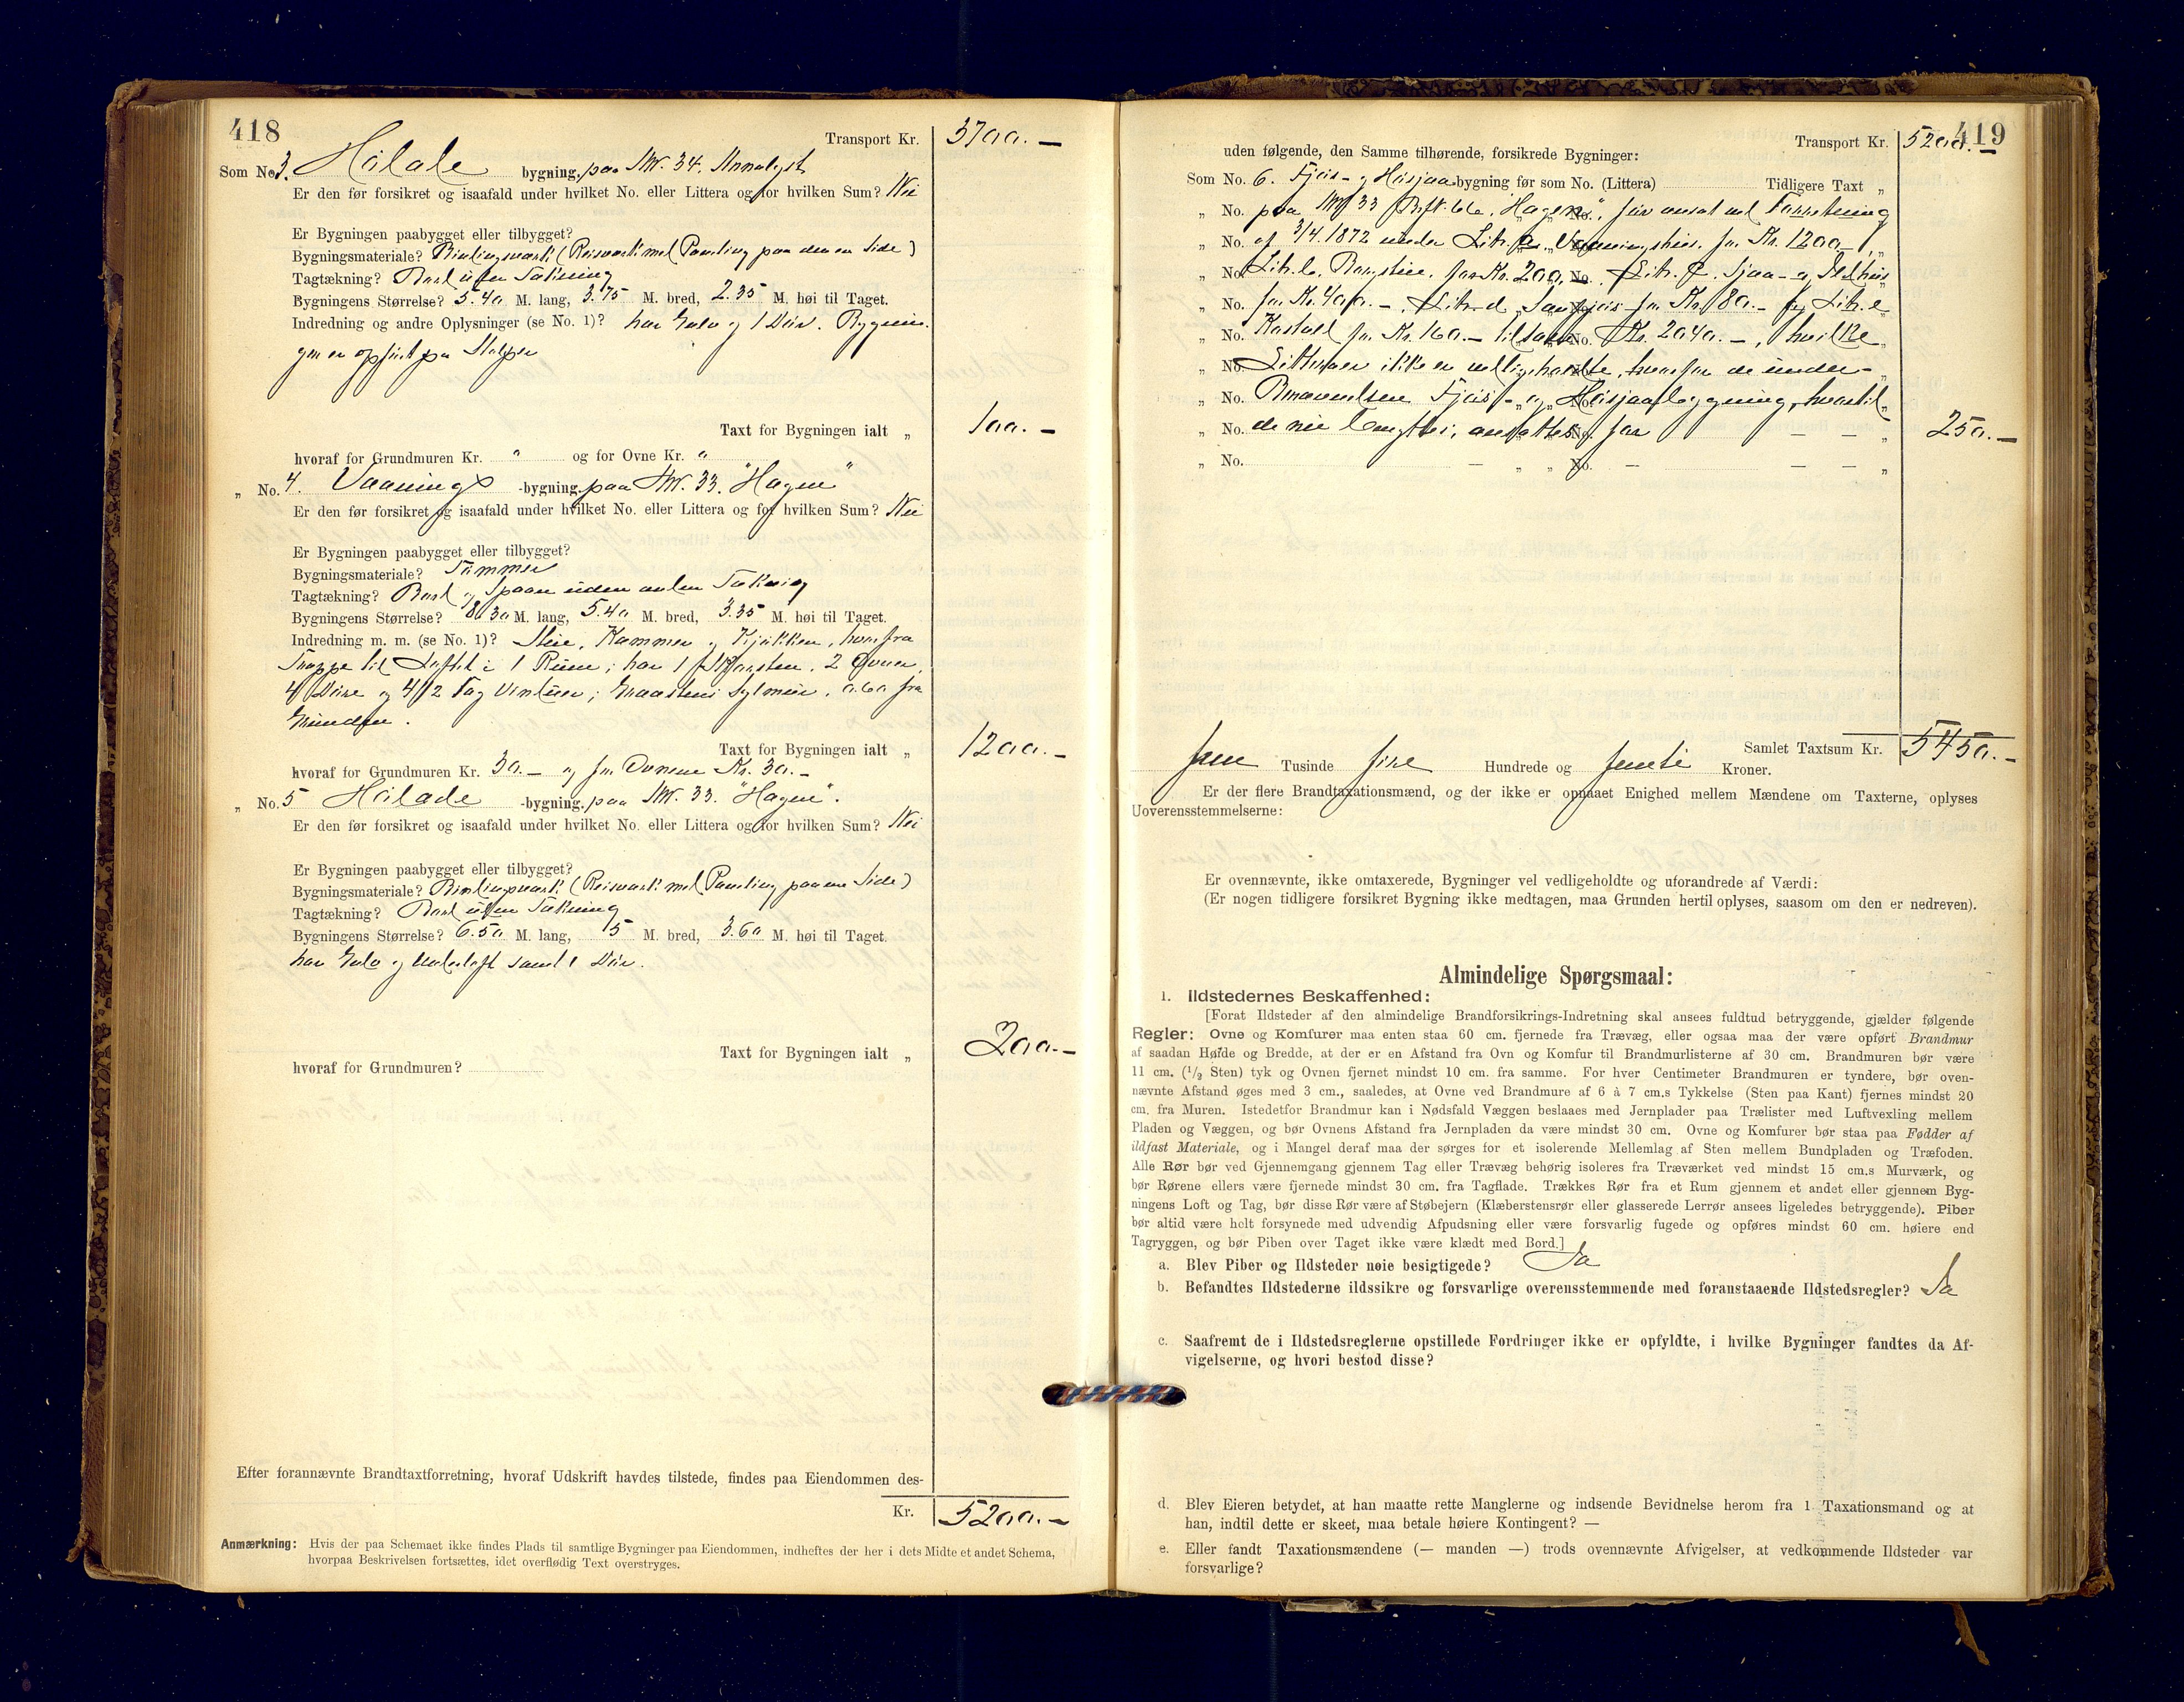 418
Transport Kr. 3700.—
Som No 3. Hølade bygning, paa Nr. 34.
Er den før forsikret og isaafald under hvilket No. eller Littera og for hvilken Sum? Nei
Er Bygningen paabygget eller tilbygget?
Bygningsmateriale? Bindingsværk (Reisværk med Paneling paa den ene Side)
Tagtækning? Bord uden Tækning
Bygningens Størrelse? 5.40 M. lang, 3.75 M. bred, 2.35 M. høi til Taget.
Indredning og andre Oplysninger (se No. 1)? har Gulv og 1 Dør. Bygnin-
gen er opført paa Stolper
Taxt for Bygningen ialt „ 100.—
hvoraf for Grundmuren Kr. " og for Ovne Kr. "
„ No. 4. Vaanings -bygning. paa Nr. 33. "Hagen"
Er den før forsikret og isaafald under hvilket No. eller Littera og for hvilken Sum? Nei
Er Bygningen paabygget eller tilbygget?
Bygningsmateriale? Tømmer
Tagtækning? Bord og Spaan uden anden Tækning
Bygningens Størrelse? 8.30 M. lang, 5.40 M. bred, 3.35 M. høi til Taget.
Indredning m. m. (se No. 1)? Stue, Kammer og Kjøkken, hvorfra
Trappe til Loftet i 1 Rum; har 1 Skorsten, 2 Ovne,
4 Døre og 4 1/2 Fag Vinduer; Graastens Sylmur, 0.60 fra
Grunden.
Taxt for Bygningen ialt „ 1200.—
hvoraf for Grundmuren Kr. 30.— og for Ovnene Kr. 30.—
„ No. 5 Hølade -bygning. paa Nr. 33. "Hagen".
Er den før forsikret og isaafald under hvilket No. eller Littera og for hvilken Sum? Nei
Er Bygningen paabygget eller tilbygget?
Bygningsmateriale? Bindingsværk (Reisværk med Paneling paa ene Side)
Tagtækning? Bord uden Tækning
Bygningens Størrelse? 6.50 M. lang, 5 M. bred, 3.60 M. høi til Taget.
har Gulv og Underloft samt 1 Dør.
Taxt for Bygningen ialt „ 200.—
hvoraf for Grundmuren?
Efter forannævnte Brandtaxtforretning, hvoraf Udskrift havdes tilstede, findes paa Eiendommen des-
Kr. 5200.—
Anmærkning: Hvis der paa Schemaet ikke findes Plads til samtlige Bygninger paa Eiendommen, indheftes der her i dets Midte et andet Schema,
hvorpaa Beskrivelsen fortsættes, idet overflødig Text overstryges.
419
Transport Kr. 5200.—
uden følgende, den Samme tilhørende, forsikrede Bygninger:
Som No. 6. Fjøs- og Høsjaa bygning før som No. (Littera) Tidligere Taxt „
„ No. paa Nr 33 "Hagen", før ansat ved Forretning
„ No. af 3/4.1872 under Litr. a. Vaaningshus for Kr. 1200.—,
„ No. Litr. b. for Kr. 200.—, Litr. c. Sjaa- og Ildhus
„ No. for Kr. 400.—, Litr. d. for Kr. 80.— og Litr. e
„ No. Kostald for Kr. 160.— tilsammen Kr. 2040.—, hvilke
„ No. Litteraer ikke er vedligeholdte, hvorfor de under
„ No. Benævnelsen Fjøs- og Høsjaabygning, hvortil
„ No. de nu benyttes, ansattes for 250.—
„ No. — „ „ No. — — — „
Samlet Taxtsum Kr. 5450.—
fem Tusinde fire Hundrede og femti Kroner.
Er der flere Brandtaxationsmænd, og der ikke er opnaaet Enighed mellem Mændene om Taxterne, oplyses
Uoverensstemmelserne:
Er ovennævnte, ikke omtaxerede, Bygninger vel vedligeholdte og uforandrede af Værdi:
(Er nogen tidligere forsikret Bygning ikke medtagen, maa Grunden hertil oplyses, saasom om den er nedreven).
Almindelige Spørgsmaal:
1. Ildstedernes Beskaffenhed:
[Forat Ildsteder af den almindelige Brandforsikrings-Indretning skal ansees fuldtud betryggende, gjælder følgende
Regler: Ovne og Komfurer maa enten staa 60 cm. fjernede fra Trævæg, eller ogsaa maa der være opført Brandmur
af saadan Høide og Bredde, at der er en Afstand fra Ovn og Komfur til Brandmurlisterne af 30 cm. Brandmuren bør være
11 cm. (1/2 Sten) tyk og Ovnen fjernet mindst 10 cm. fra samme. For hver Centimeter Brandmuren er tyndere, bør oven-
nævnte Afstand øges med 3 cm., saaledes, at Ovne ved Brandmure af 6 à 7 cm.s Tykkelse (Sten paa Kant) fjernes mindst 20
cm. fra Muren. Istedetfor Brandmur kan i Nødsfald Væggen beslaaes med Jernplader paa Trælister med Luftvexling mellem
Pladen og Væggen, og bør Ovnens Afstand fra Jernpladen da være mindst 30 cm. Ovne og Komfurer bør staa paa Fødder af
ildfast Materiale, og i Mangel deraf maa der sørges for et isolerende Mellemlag af Sten mellem Bundpladen og Træfoden.
Alle Rør bør ved Gjennemgang gjennem Tag eller Trævæg behørig isoleres fra Træværket ved mindst 15 cm.s Murværk, og
bør Rørene ellers være fjernede mindst 30 cm. fra Tagflade. Trækkes Rør fra et Rum gjennem et andet eller gjennem Byg-
ningens Loft og Tag, bør disse Rør være af Støbejern (Klæberstensrør eller glasserede Lerrør ansees ligeledes betryggende). Piber
bør altid være helt forsynede med udvendig Afpudsning eller være forsvarlig fugede og opføres mindst 60 cm. høiere end
Tagryggen, og bør Piben over Taget ikke være klædt med Bord.]
a. Blev Piber og Ildsteder nøie besigtigede? Ja
b. Befandtes Ildstederne ildssikre og forsvarlige overensstemmende med foranstaaende Ildstedsregler? Ja
c. Saafremt de i Ildstedsreglerne opstillede Fordringer ikke er opfyldte, i hvilke Bygninger fandtes da Af-
vigelserne, og hvori bestod disse?
d. Blev Eieren betydet, at han maatte rette Manglerne og indsende Bevidnelse herom fra 1 Taxationsmand og at
han, indtil dette er skeet, maa betale høiere Kontingent? —
e. Eller fandt Taxationsmændene (— manden —) trods ovennævnte Afvigelser, at vedkommende Ildsteder var
forsvarlige?